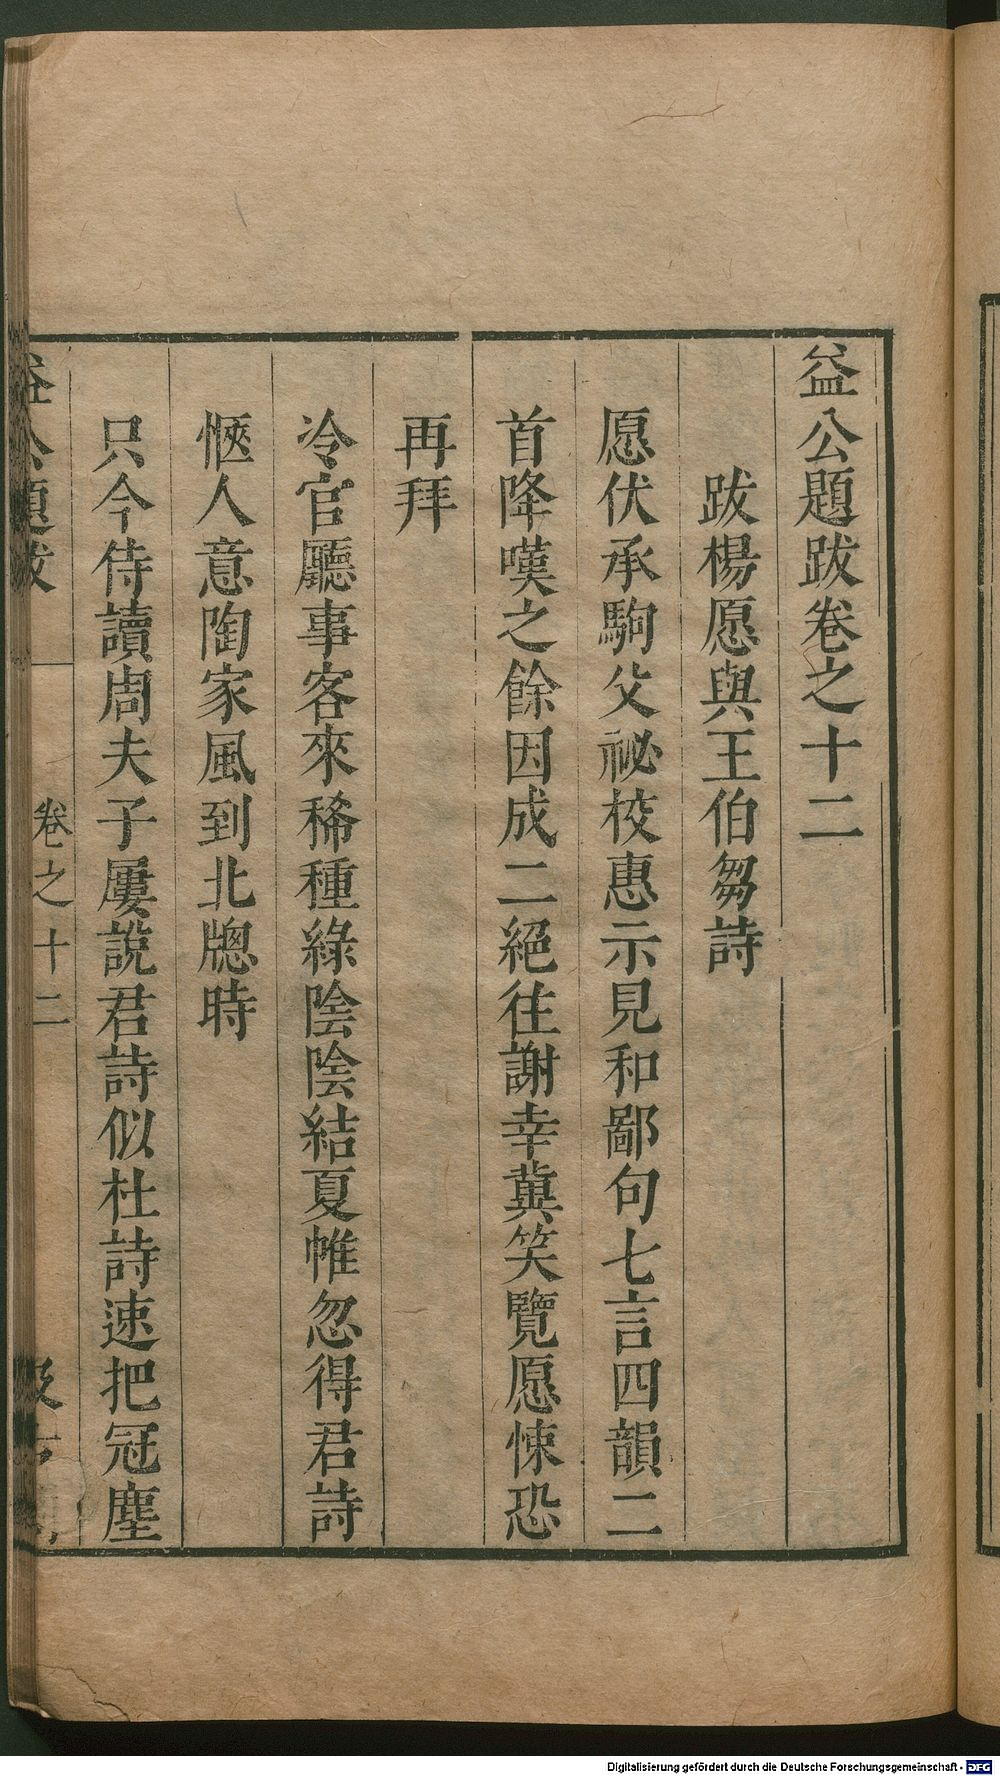 益公題跋卷之十二
跋楊愿與王伯芻詩
愿伏承駒父祕校惠示見和鄙句七言四韻二
首降嘆之餘因成二絕往謝幸冀笑覽愿悚恐
再拜
冷官廳事客來稀種綠陰陰結夏帷忽得君詩
愜人意陶家風到北牕時
只今侍讀周夫子屢說君詩似杜詩速把冠塵
益公題跋
卷之十二
Digitalisierung gefördert durch die Deutsche Forschungsgemeinschaft - DFG